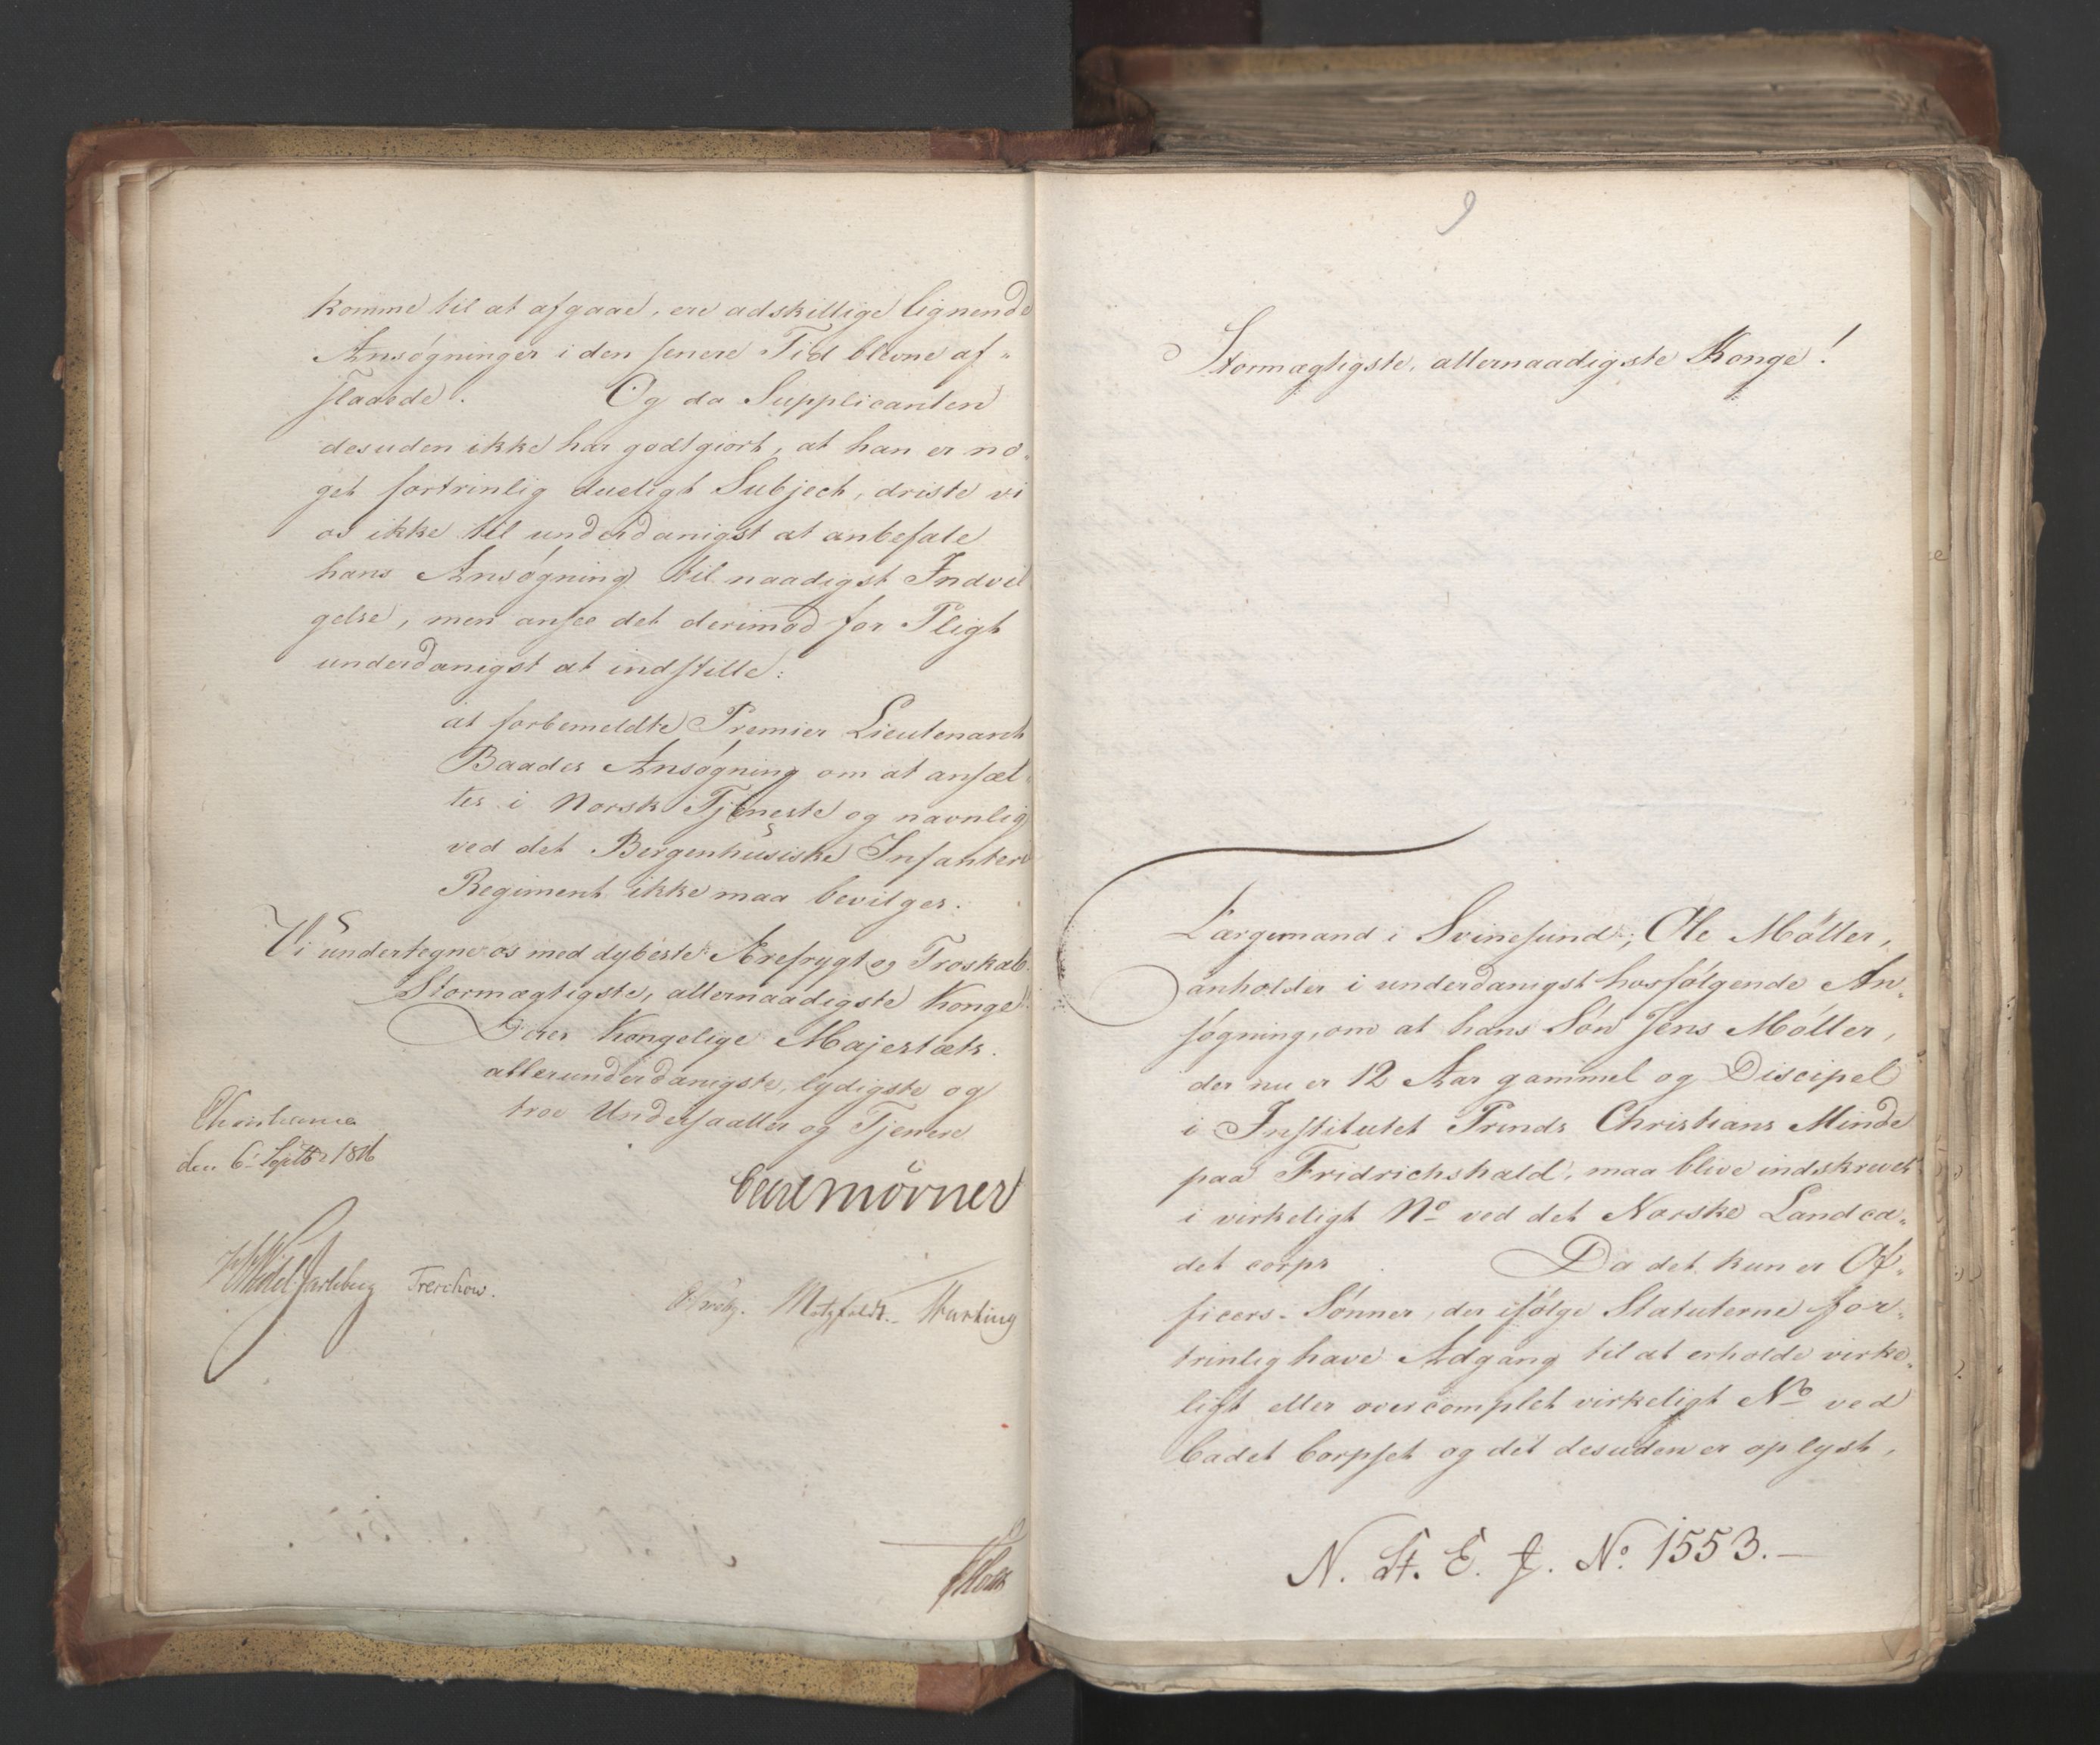 komme til at afgaae, ere adskillige lignende
Ansøgninger i den senere Tid blevne af-
slaaede. Og da Supplicanten
desuden ikke har godtgiort, at han er no-
get fortrinlig dueligt Subject, driste vi
os ikke til underdanigst at anbefale
hans Ansøgning til naadigst Indvil
gelse, men ansee det derimod for Pligt
underdanigst at indstille:
at forbemeldte Premier Lieutenant
Baades Ansøgning om at ansæt-
tes i Norsk Tjeneste og navnlig
ved det Bergenhusiske Infanterie
Regiment ikke maa bevilges.
Vi undertegne os med dybeste Ærefrygt og Troskab.
Stormægtigste, allernaadigste Konge!
Deres Kongelige Majestæts.
allerunderdanigste, lydigste og
troe Undersaatter og Tjenere
Christiania
den 6 Septbr 1816
Carl Mörner
Wedel Jarlsberg Treschow.
Motzfeldt. Hurting
Holst
9
Stormægtigste, allernaadigste Konge!
Færgemand i Svinesund, Ole Møller,
anholder i underdanigst hosfølgende An-
søgning, om at hans Søn Jens Møller,
der nu er 12 Aar gammel og Discipel
i Institutet Prinds Christians Minde
paa Fridrichshald, maa blive indskrevet
i virkeligt No ved det Norske Landca-
det corps. Da det kun er Of-
ficers-Sønner, der ifølge Statuterne for-
trinlig have Adgang til at erholde virke-
ligt eller overcomplet virkeligt No ved
Cadet Corpset og det desuden er oplyst,
N. St. E. J. No. 1553.-